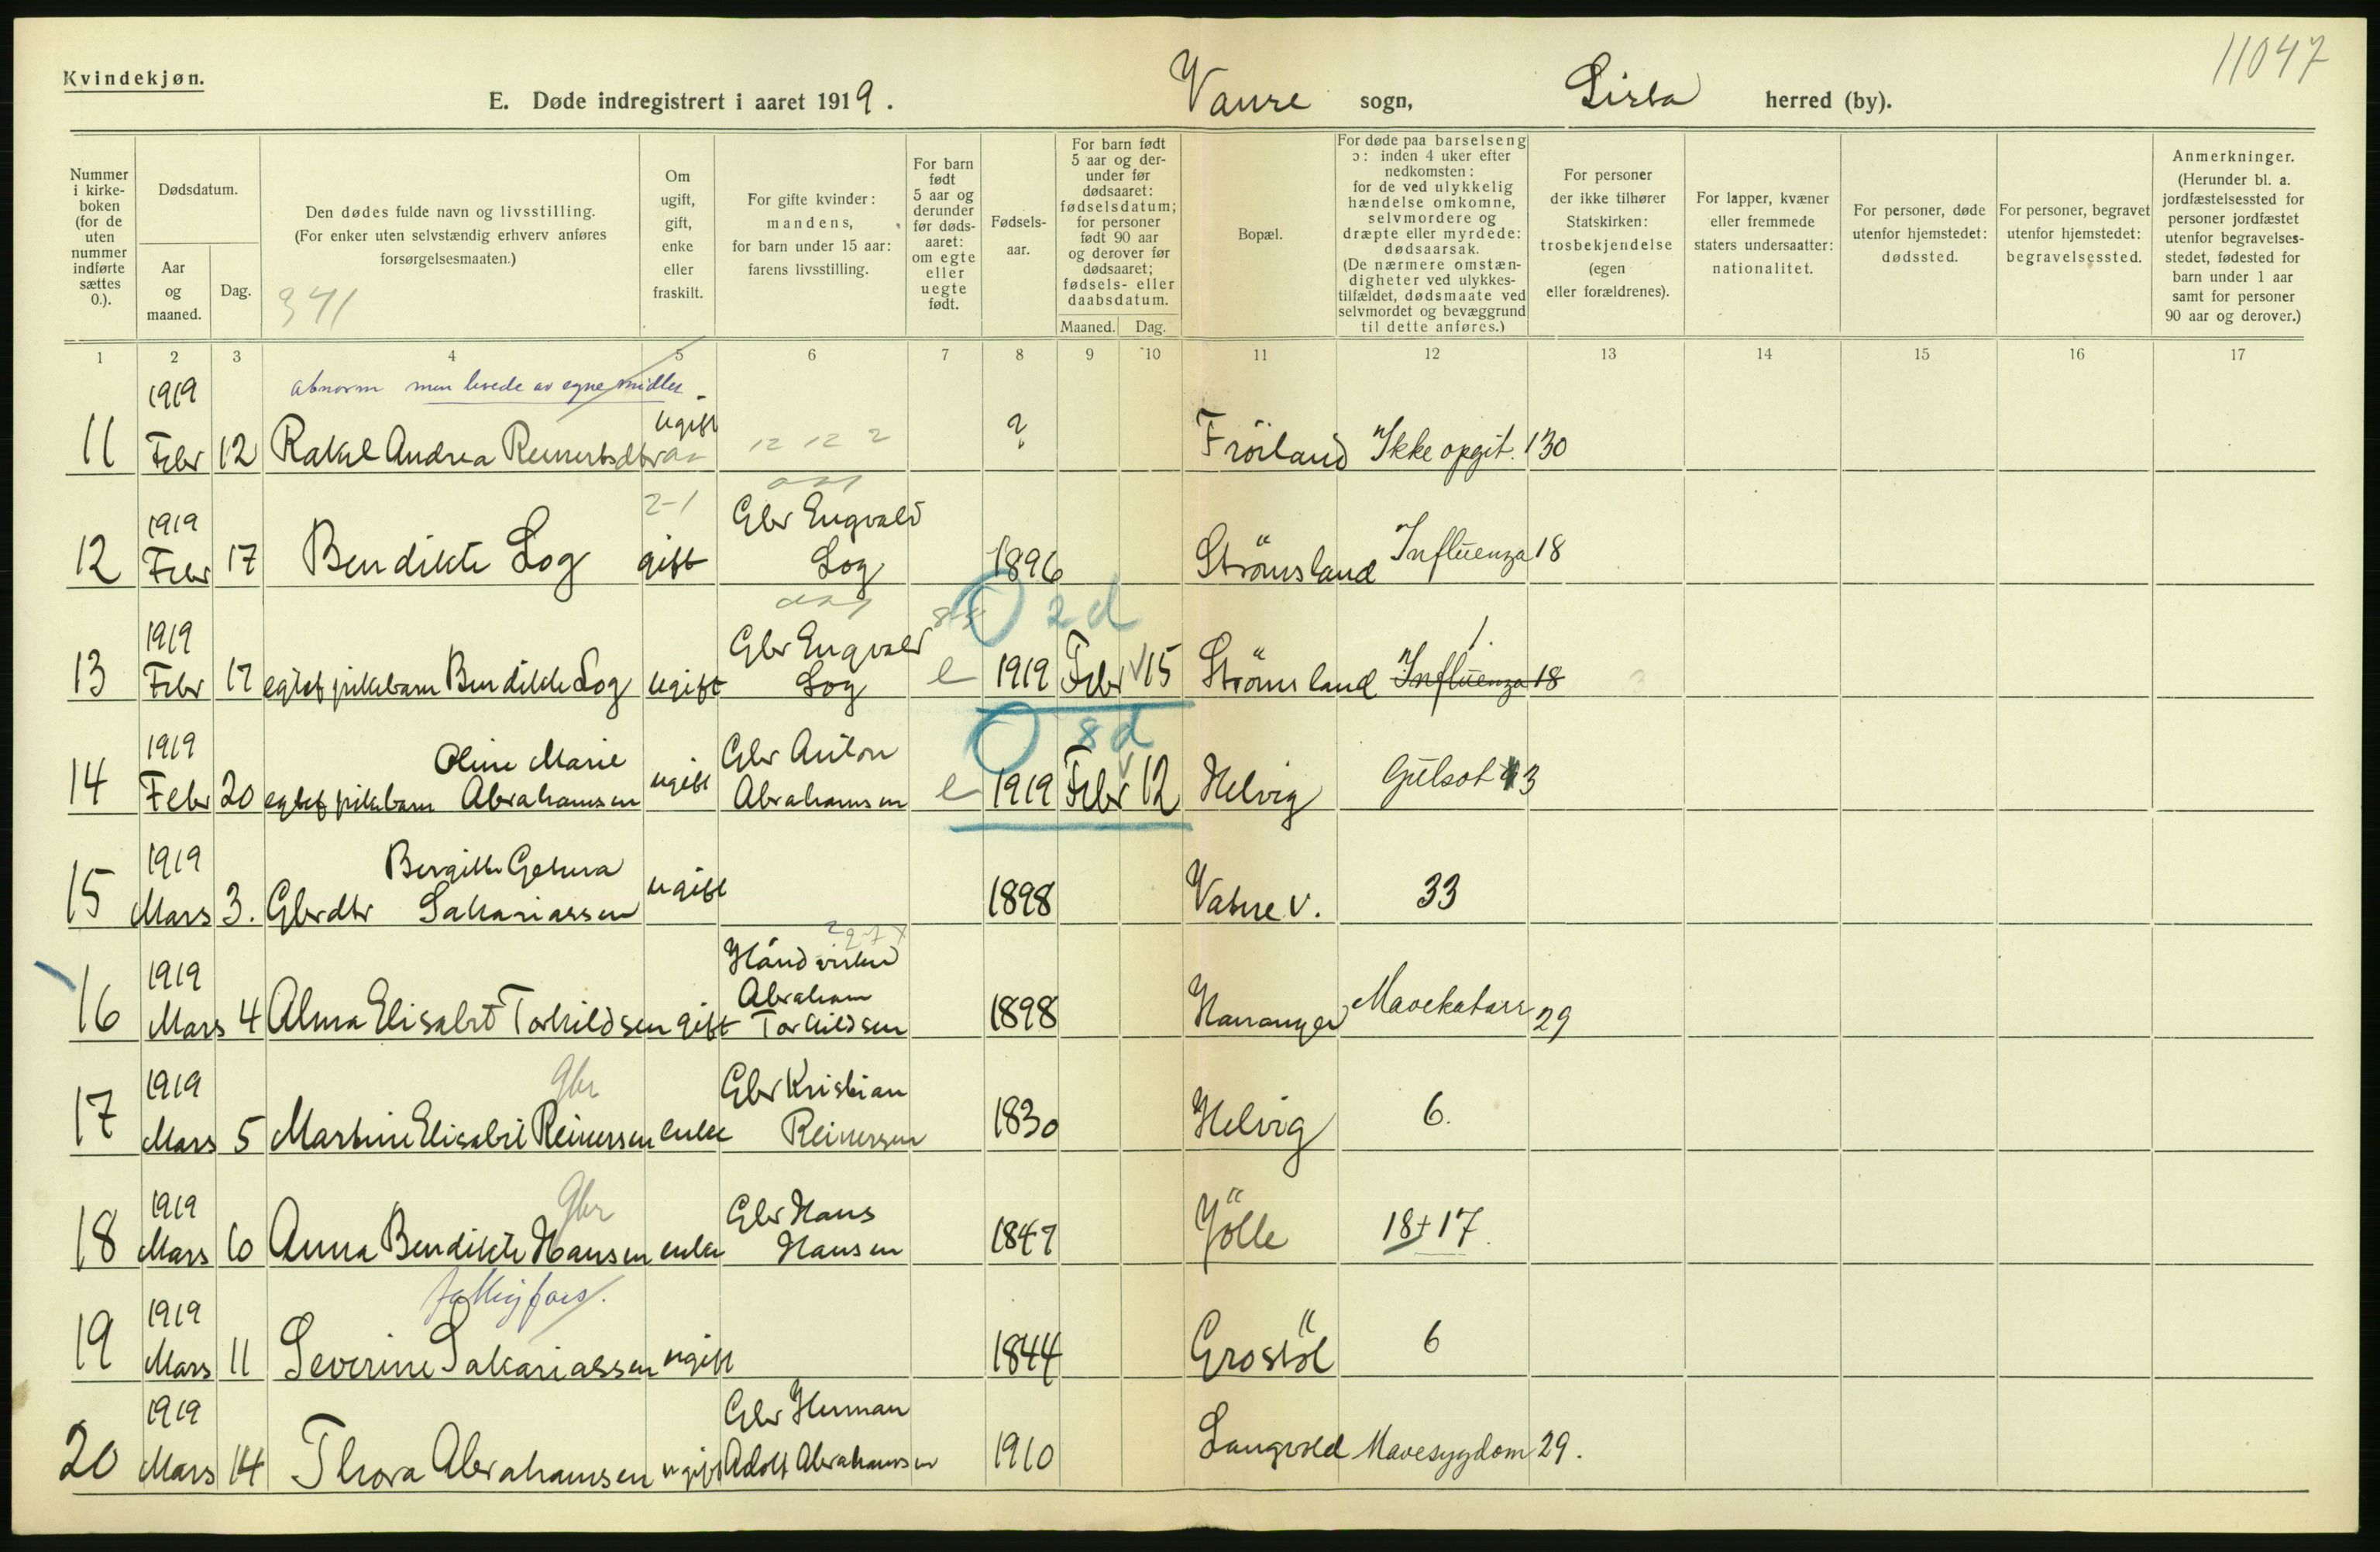 11047
Kvindekjøn.
E. Døde indregistrert i aaret 1919. Vanse sogn, Lista herred (by).
Nummer i kirkeboken (for de uten nummer indførte sættes 0.).
Dødsdatum.
Aar og maaned.
Dag.
Den dødes fulde navn og livsstilling.
(For enker uten selvstændig erhverv anføres forsørgelsesmaaten.)
341
Om ugift, gift, enke eller fraskilt.
For gifte kvinder: mandens, for barn under 15 aar: farens livsstilling.
For barn født 5 aar og derunder før dødsaaret: om egte eller uegte født.
Fødselsaar.
For barn født 5 aar og derunder før dødsaaret: fødselsdatum; for personer født 90 aar og derover før dødsaaret; fødsels- eller daabsdatum.
Maaned. Dag.
Bopæl.
For døde paa barselseng ɔ: inden 4 uker efter nedkomsten: for de ved ulykkelig hændelse omkomne, selvmordere og dræpte eller myrdede: dødsaarsak.
(De nærmere omstændigheter ved ulykkestilfældet, dødsmaate ved selvmordet og bevæggrund til dette anføres.)
For personer der ikke tilhører Statskirken: trosbekjendelse (egen eller forældrenes).
For lapper, kvæner eller fremmede staters undersaatter: nationalitet.
For personer, døde utenfor hjemstedet: dødssted.
For personer, begravet utenfor hjemstedet: begravelsessted.
Anmerkninger.
(Herunder bl. a. jordfæstelsessted for personer jordfæstet utenfor begravelsesstedet, fødested for barn under 1 aar samt for personer 90 aar og derover.)
1 2 3 4 5 6 7 8 9 10 11 12 13 14 15 16 17
abnorm men levede av egne midler
11 1919 Febr 12 Rakel Andrea Reinertsdtr ugift 12 12 2 ? Fröiland Ikke opgit. 130
12 1919 Febr 17 Bendikte Log 2-1 gift Gbr Engvald Log 1896 Strömsland Influenza 18
2 d
13 1919 Febr 17 egtef pikebarn Bendikte Log ugift Gbr Engvald Log e 1919 Febr 15 Strömsland Influenza 18 1.
8 d
14 1919 Febr 20 egtef pikebarn Oline Marie Abrahamsen ugift Gbr Anton Abrahamsen e 1919 Febr 12 Helvig Gulsot 3
15 1919 Mars 3. Gbrdtr Bergitte Getura Sakariassen ugift 1898 Vatne V. 33
16 1919 Mars 4 Alma Elisabet Torkildsen gift Håndverker Abraham Torkildsen 1898 Hananger Mavekatarr 29
17 1919 Mars 5 Martine Elisabet Reinersen Gbr enke Gbr Kristian Reinersen 1830 Helvig 6.
18 1919 Mars 10 Anna Bendikte Hansen Gbr enke Gbr Hans Hansen 1847 Jölle 18+17.
fattigfors.
19 1919 Mars 11 Severine Sakariassen ugift 1844 Grostöl 6
20 1919 Mars 14 Thora Abrahamsen ugift Gbr Herman Adolf Abrahamsen 1910 Langvold Mavesygdom 29.